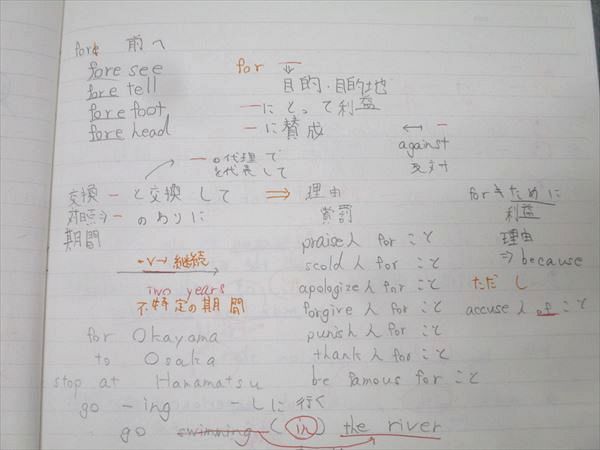 fore 前へ
fore see
fore tell
fore foot
fore head
for ー
↓
目的・目的地
ーにとって利益
ーに賛成
↔ ー
against
反対
ーの代理で
を代表して
交換 ーと交換して
対照 ーのわりに
期間
⇒ 理由
賞罰
praise 人 for こと
scold 人 for こと
apologize 人 for こと
forgive 人 for こと
punish 人 for こと
thank 人 for こと
be famous for こと
for ≠ ために
利益
理由
⇒ because
ただし
accuse 人 of こと
ーV→ 継続
two years
不特定の期間
for Okayama
to Osaka
stop at Hamamatsu
go -ing ーしに行く
go swimming (in) the river